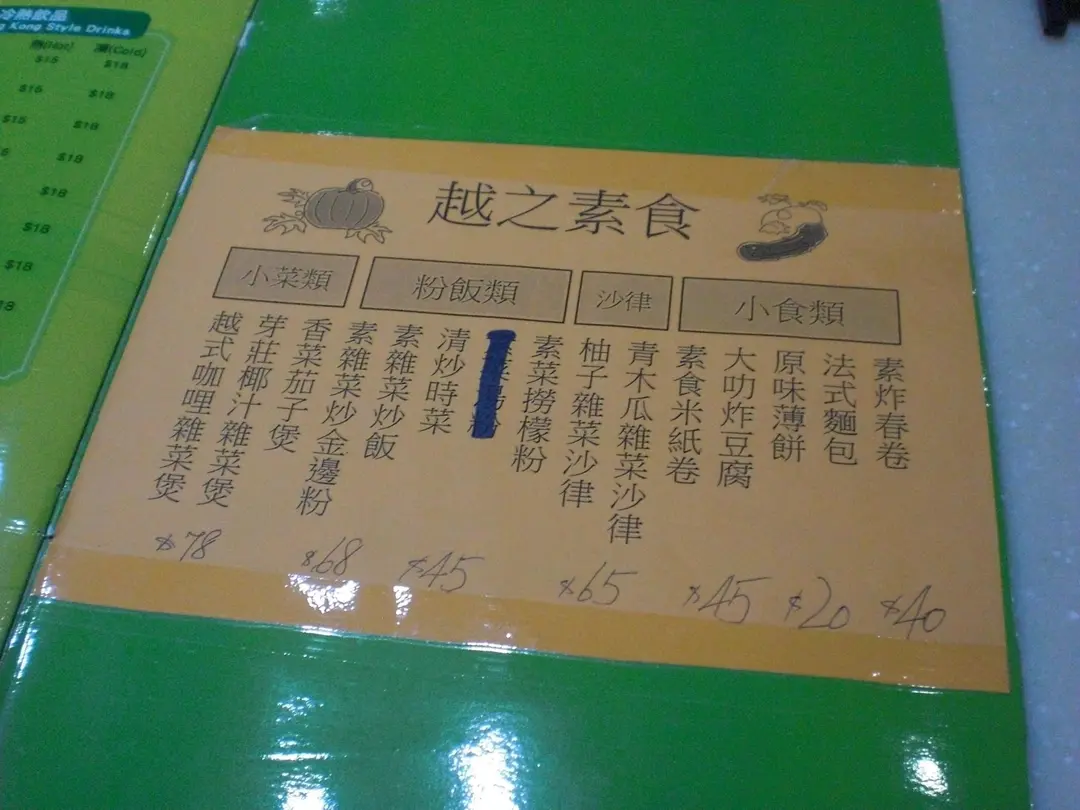 冷熱飲品
Kong Style Drinks
熱(Hot) 凍(Cold)
$15 $18
$15 $18
$15 $18
$18
$18
$18
$18
越之素食
小菜類 粉飯類 沙律 小食類
素炸春卷
法式麵包
原味薄餅
大叻炸豆腐
素食米紙卷
青木瓜雜菜沙律
柚子雜菜沙律
素菜撈檬粉
清炒時菜
素雜菜炒飯
素雜菜炒金邊粉
香菜茄子煲
芽莊椰汁雜菜煲
越式咖哩雜菜煲
$78 $68 $45 $65 $45 $20 $40